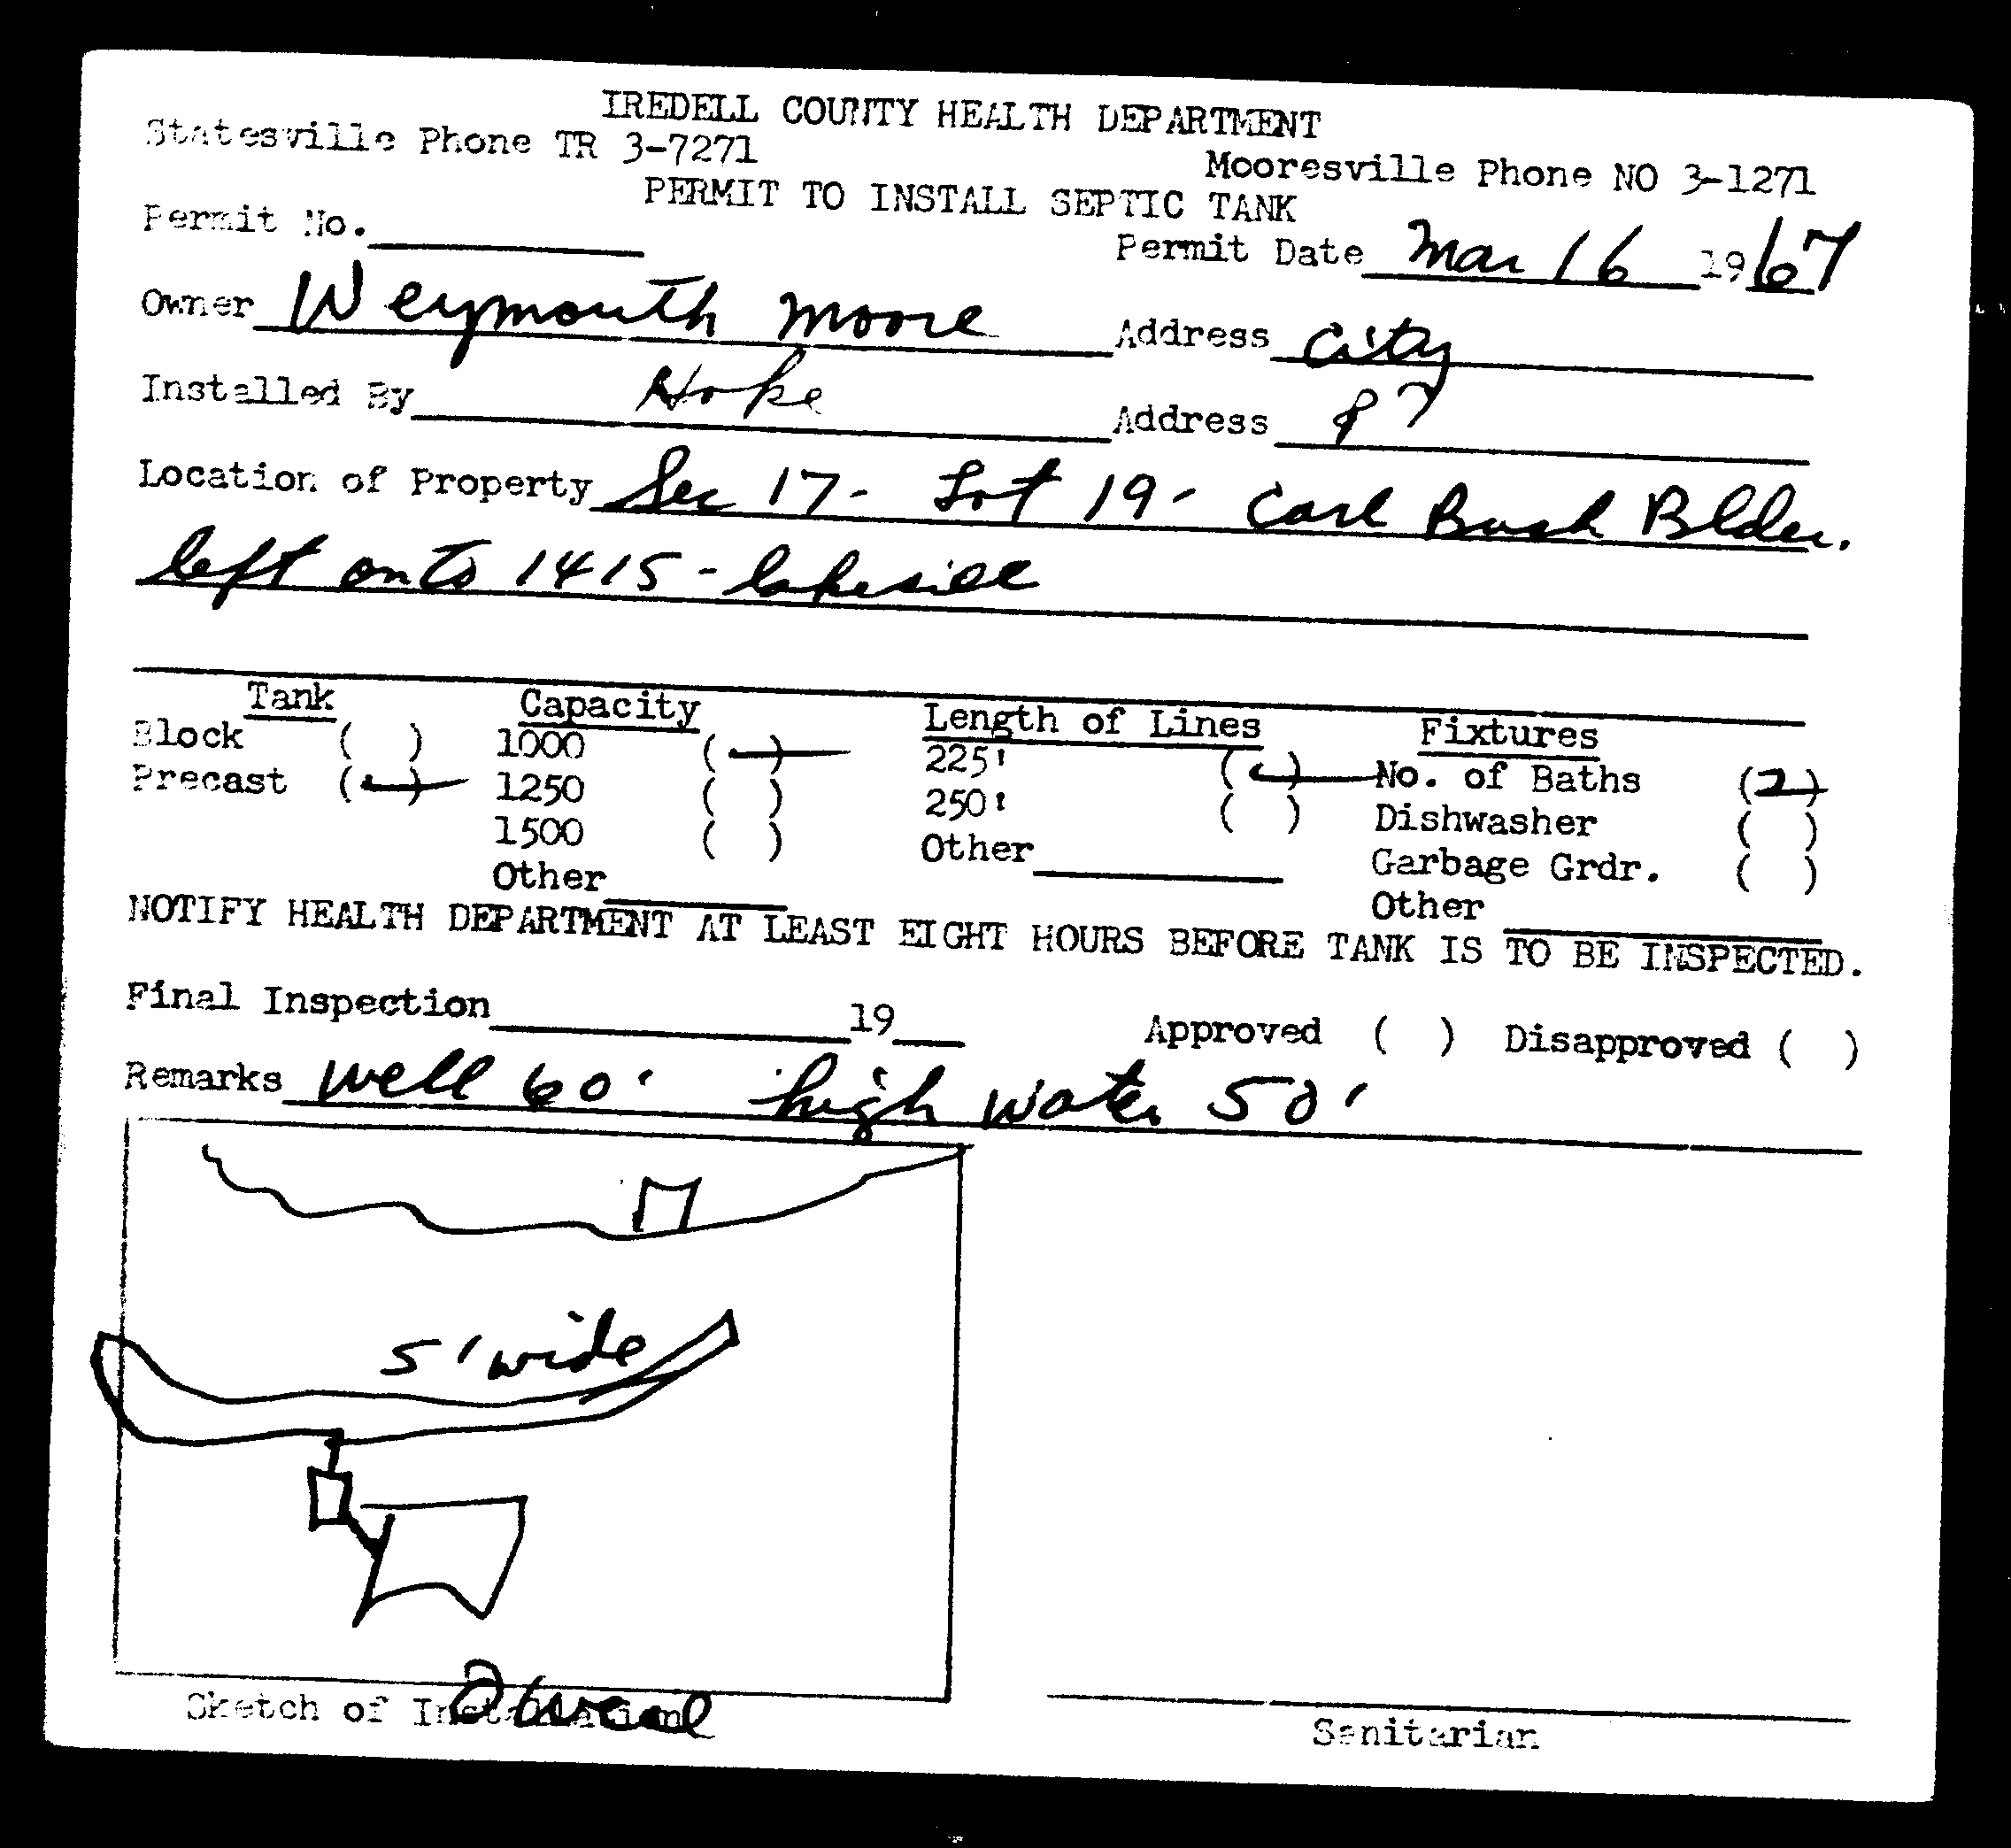 IREDELL COUNTY HEALTH DEPARTMENT
Statesville Phone TR 3-7271
Mooresville Phone NO 3-1271
PERMIT TO INSTALL SEPTIC TANK
Permit No. Permit Date Mar 16 1967
Owner Weymouth Moore Address City
Installed By Hoke Address
Location of Property Sec 17 - Lot 19 - Carl Bush Blder.
left onto 1415 - lakeside
Tank Capacity Length of Lines Fixtures
Block ( ) 1000 ( ) 225' ( ) No. of Baths (2)
Precast ( ) 1250 ( ) 250' ( ) Dishwasher ( )
1500 ( ) Other Garbage Grdr. ( )
Other Other
NOTIFY HEALTH DEPARTMENT AT LEAST EIGHT HOURS BEFORE TANK IS TO BE INSPECTED.
Final Inspection 19 Approved ( ) Disapproved ( )
Remarks well 60' high water 50'
5' wide
Sketch of Installation
Sanitarian